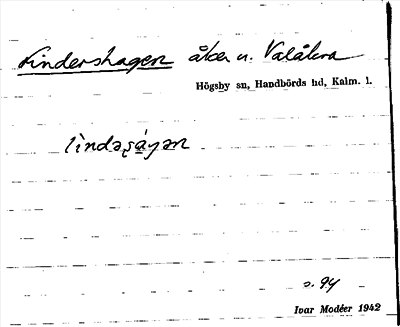 Lindershagen åker u. Valåkra
Högsby sn, Handbörds hd, Kalm. l.
lìndəʂágən
s. 94
Ivar Modéer 1942